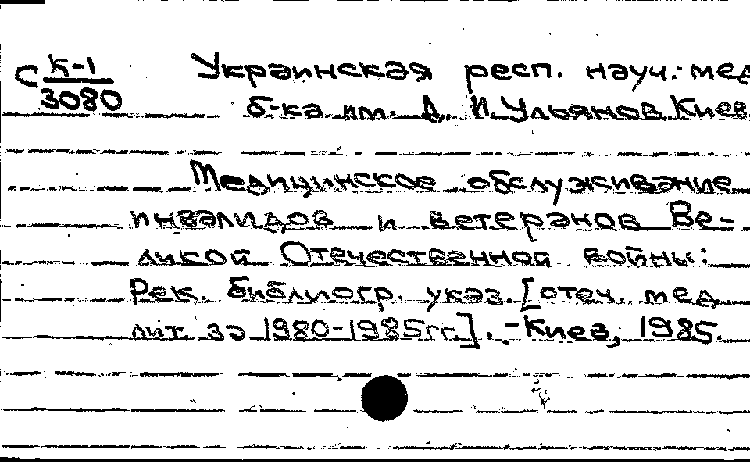 С К-1 Украинская респ. науч. мед
3080 б-ка им. Д. И. Ульянов. Киев.
Медицинское обслуживание
инвалидов и ветеранов Ве-
ликой Отечественной войны:
Рек. библиогр. указ. [отеч. мед
лит. за 1980-1985гг.]. - Киев, 1985.